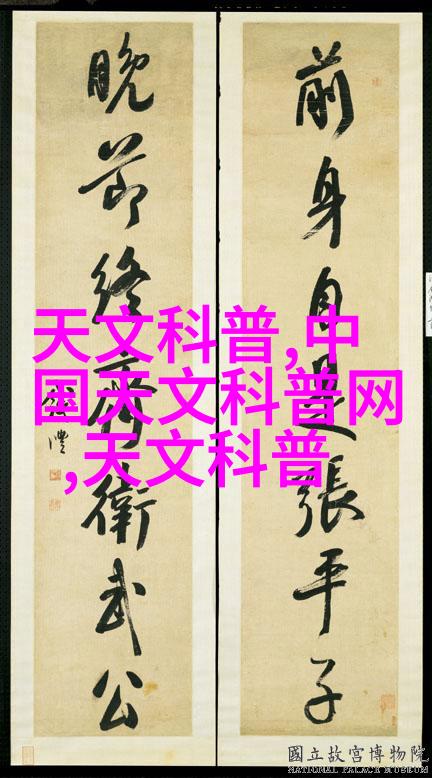 前身自是張平子
晚節終齊衛武公
澧
天文科普,中
国天文科普网
,天文科普
國立故宮博物院
NATIONAL PALACE MUSEUM